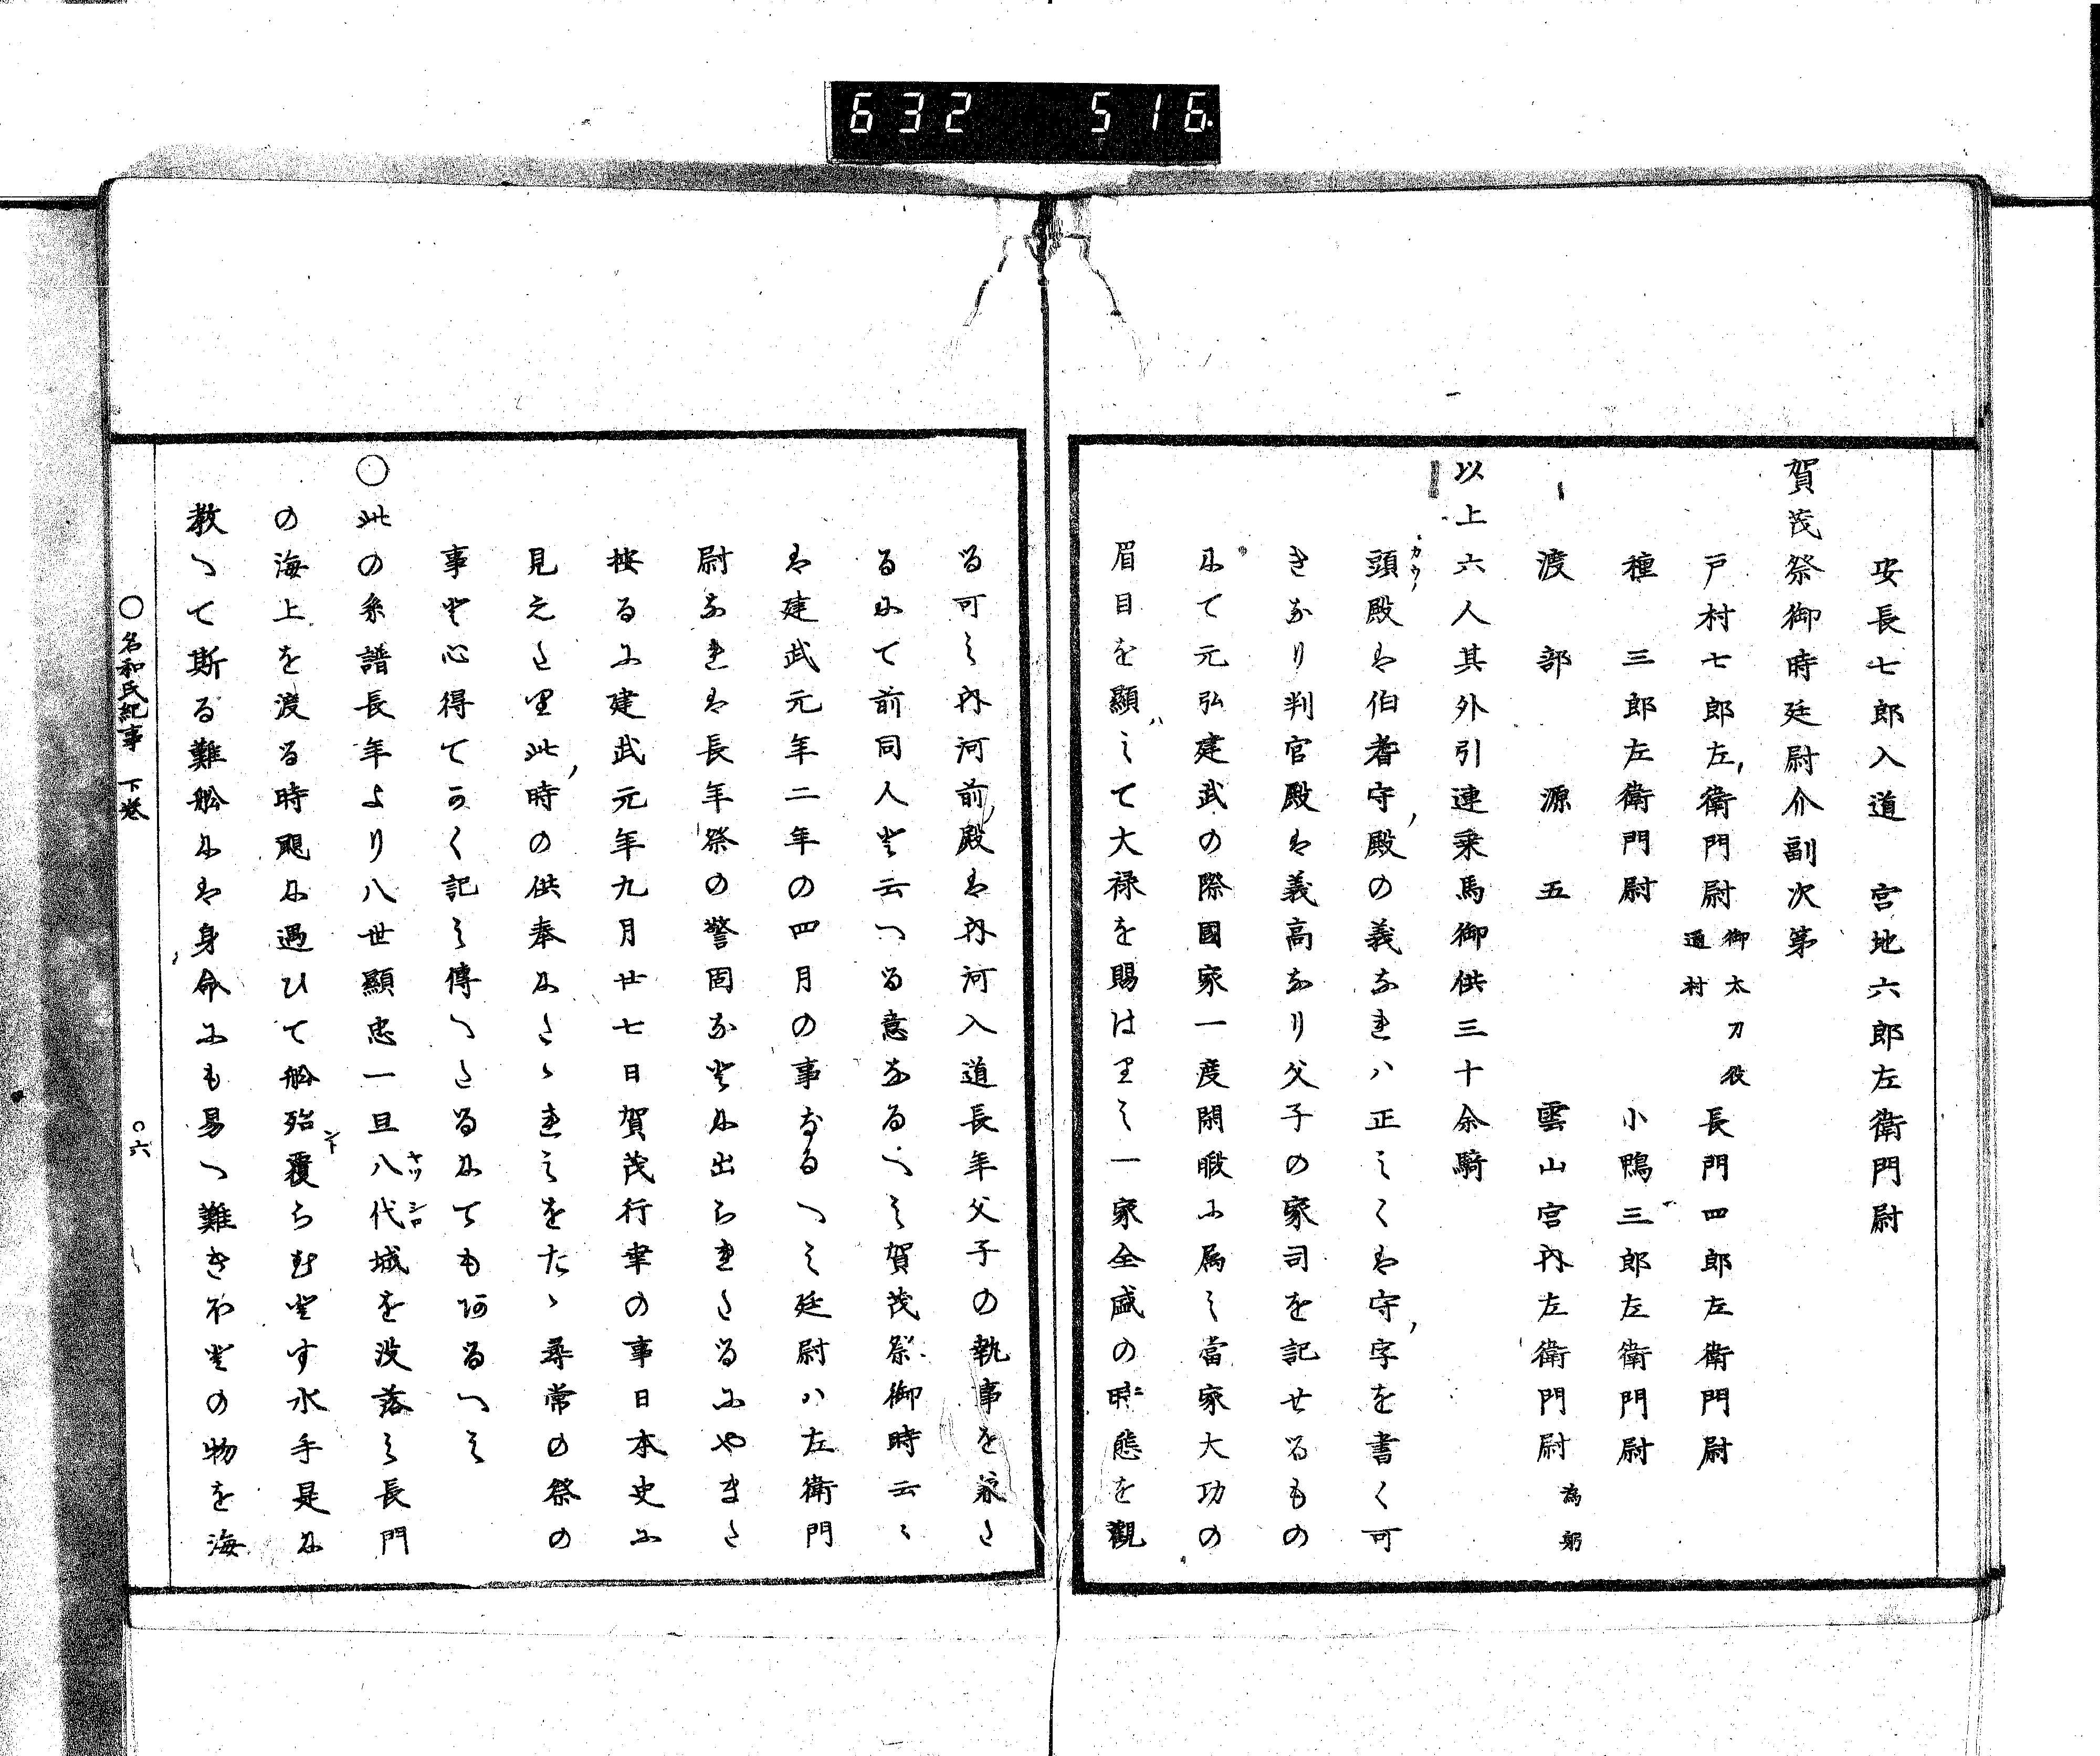 632 516
安長七郎入道　宮地六郎左衛門尉
賀茂祭御時廷尉介副次第
戸村七郎左衛門尉 御太刀役 通村　長門四郎左衛門尉
種三郎左衛門尉　小鴨三郎左衛門尉
渡部源五　雲山宮内左衛門尉 為躬
以上六人其外引連乗馬御供三十余騎
頭殿は伯耆守殿の義なれハ正しくは守字を書く可
きなり判官殿は義高なり父子の家司を記せるもの
にて元弘建武の際國家一度閑暇に属し當家大功の
眉目を顯ハして大禄を賜はりし一家全盛の時態を觀
る可し内河前殿は内河入道長年父子の執事を兼た
るにて前同人と云へる意なるへし賀茂祭御時云々
は建武元年二年の四月の事なるへし廷尉ハ左衛門
尉なれは長年祭の警固なとに出られたるにやまた
按るに建武元年九月廿七日賀茂行幸の事日本史に
見えたり此時の供奉にたゝれしをたゝ尋常の祭の
事と心得てかく記し傳へたるにても阿るへし
○此の系譜長年より八世顯忠一旦八代城を没落し長門
の海上を渡る時颶に遇ひて船殆覆らむとす水手是に
教へて斯る難船には身命にも易へ難きほとの物を海
○名和氏紀事　下巻　○六